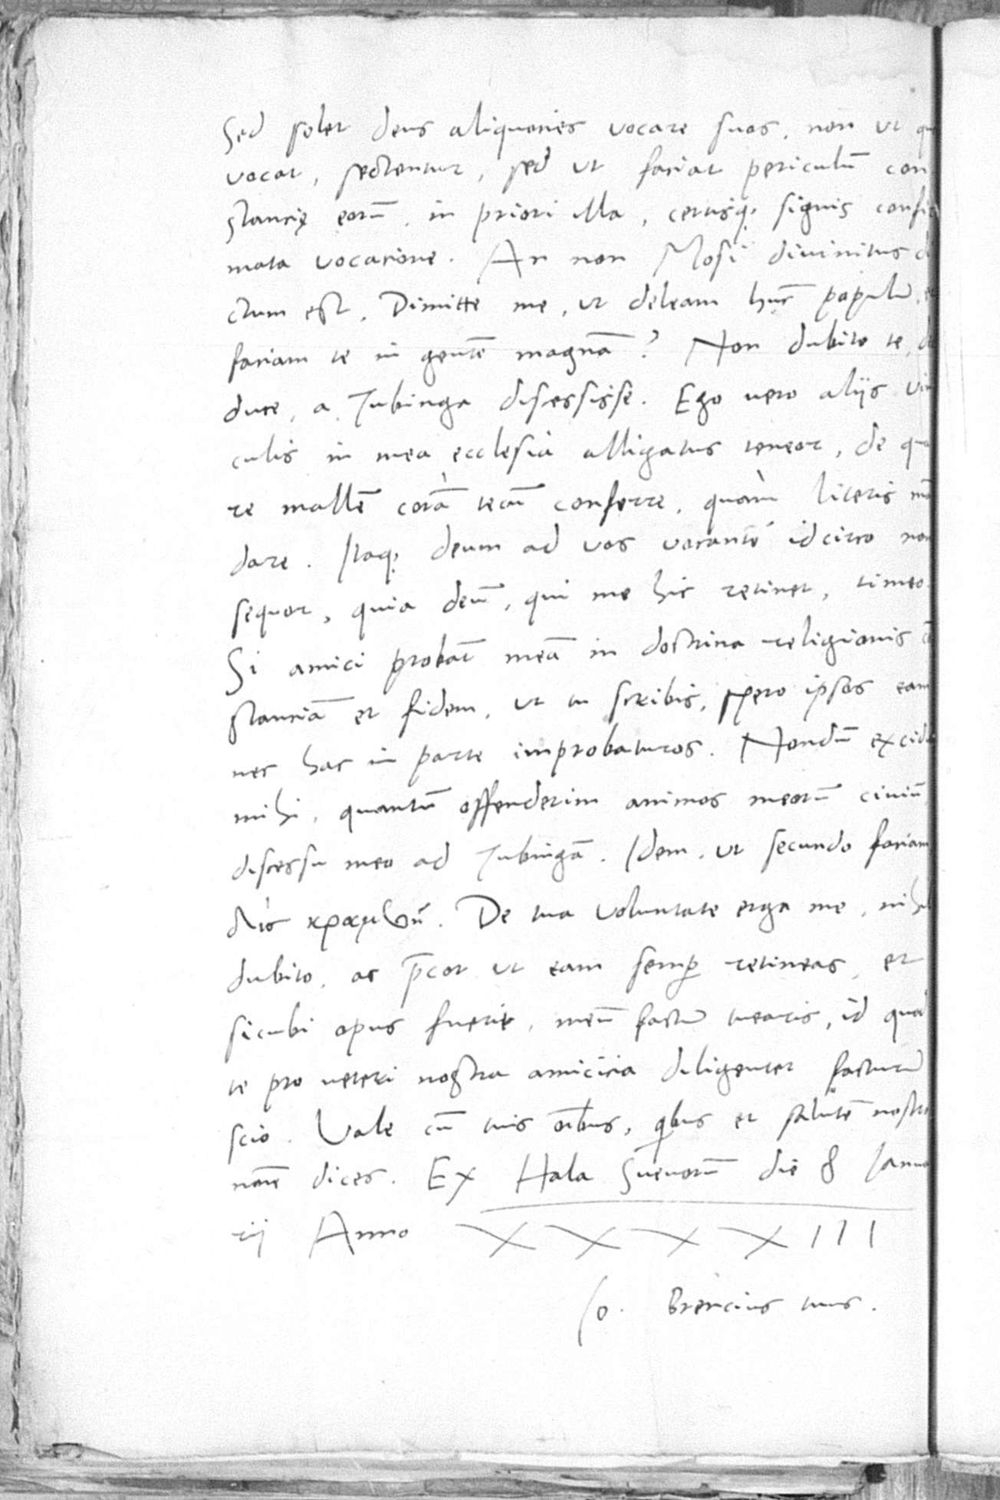 Sed solet deus aliquoties vocare suos, non ut
vocat, sectentur, sed ut faciat periculū con
stancię eorū, in priori illa, certisq; signis confir
mata vocatione. An non Mosi divinitus di
ctum est, Dimitte me, ut deleam hūc populū,
faciam te in gentē magnā? Non dubito te,
duce, a Tubinga discessisse. Ego vero aliis vin
culis in mea ecclesia alligatus teneor, de qua
re mallē corā tecū conferre, quàm literis mā
dare. Itaq; deum ad vos vocantē idcirco non
sequor, quia deū, qui me hic retinet, timeo.
Si amici probāt meā in doctrina religionis cō
stanciā et fidem, ut tu scribis, spero ipsos eam
nec hac in parte improbaturos. Nondū excidit
mihi, quantū offenderim animos meorū civiū
discessu meo ad Tubingā. Idem, ut secundo faciam
δὶς κράμβην. De tua voluntate erga me, nihil
dubito, ac p̄cor ut eam semp̱ retineas, et
sicubi opus fuerit, meū factū tuearis, id quod
te pro veteri nostra amicicia diligenter facturū
scio. Vale cū tuis oībus, qibus et salutē nostro
noīe dices. Ex Hala Suevorū die 8 Janua
rii Anno XXXXIII
Jo. Brencius tuus.